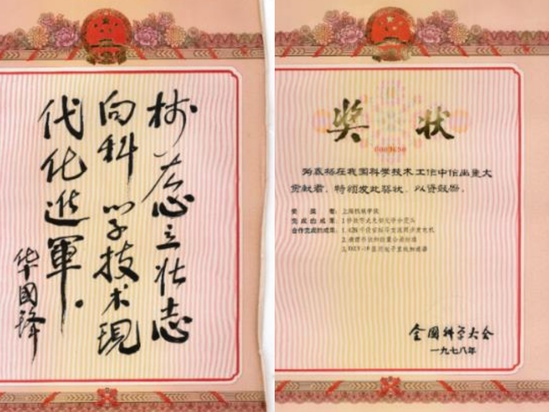 树雄心立壮志
向科学技术現
代化進軍。
华國锋
奖状
为表扬在我国科学技术工作中作出重大
贡献者，特颁发此奖状，以资鼓励。
上海机械学院
完成的成果：
合作完成的成果：
全国科学大会
一九七八年